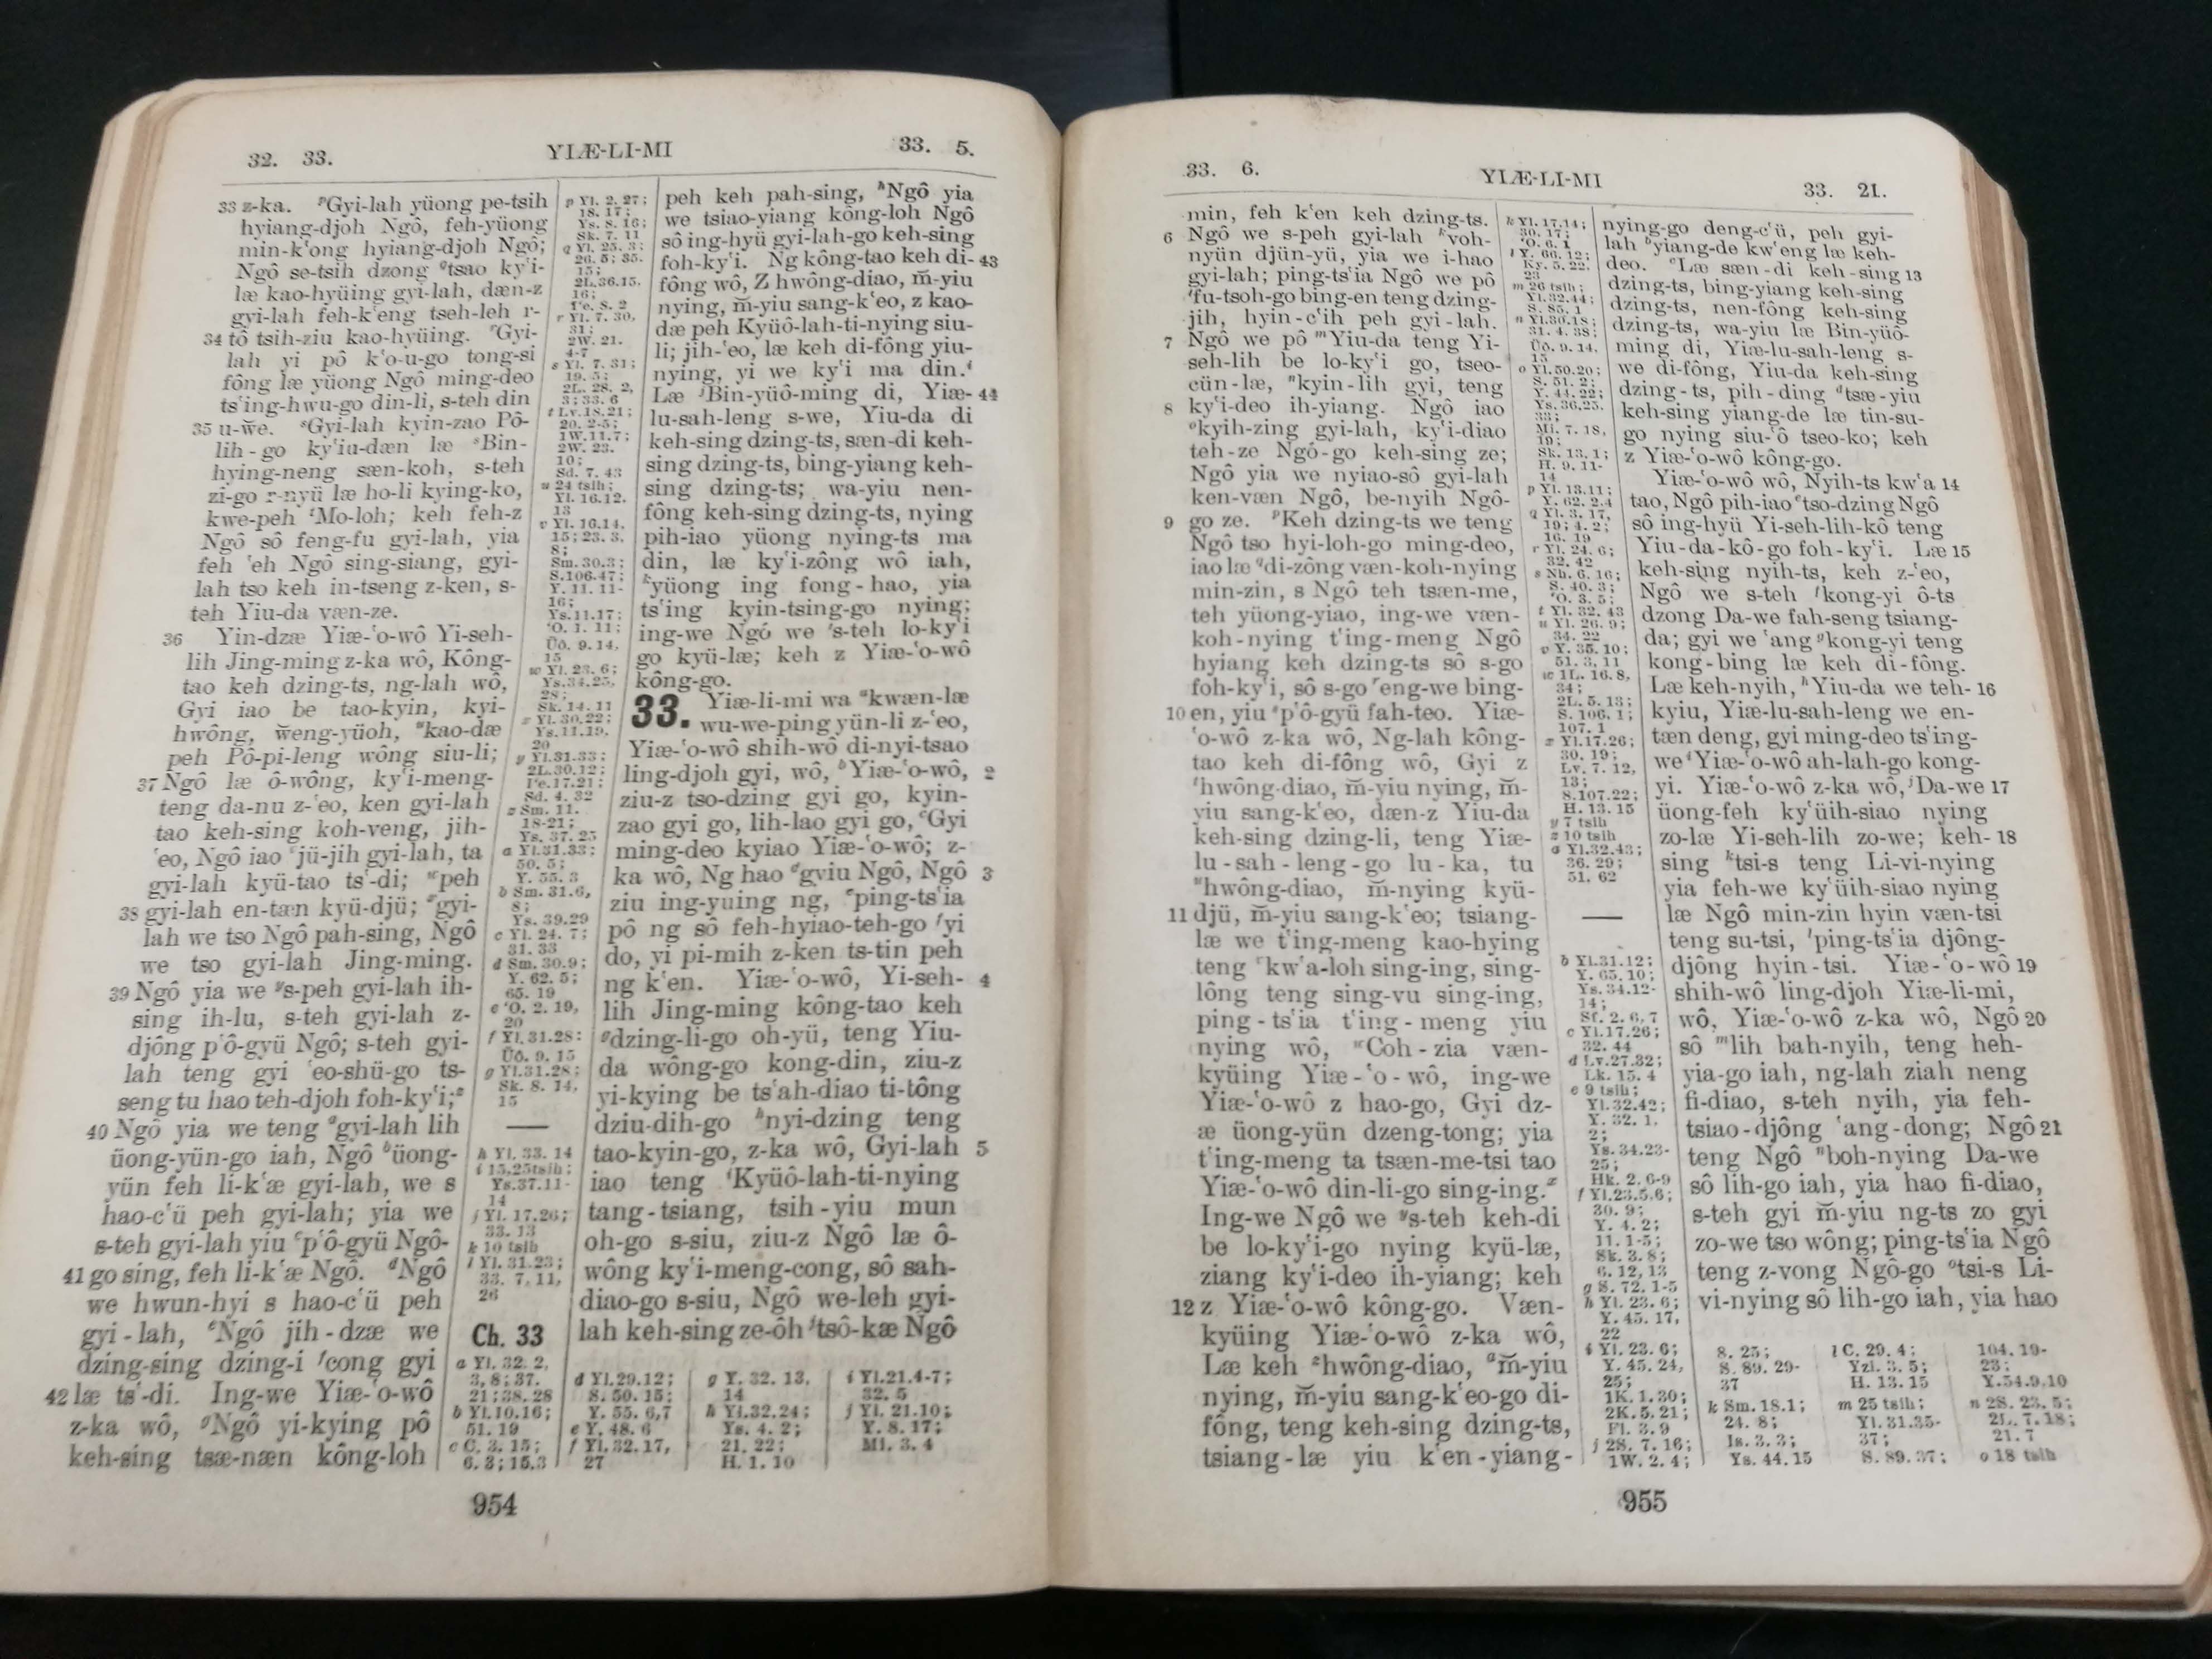 32. 33. YIÆ-LI-MI 33. 5.
33 z-ka. ᵖGyi-lah yüong pe-tsih
hyiang-djoh Ngô, feh-yüong
min-k‘ong hyiang-djoh Ngô;
Ngô se-tsih dzong ᵠtsao ky‘i-
læ kao-hyüing gyi-lah, dæn-z
gyi-lah feh-k‘eng tseh-leh r-
34 tô tsih-ziu kao-hyüing. ʳGyi-
lah yi pô k‘o-u-go tong-si
fông læ yüong Ngô ming-deo
ts‘ing-hwu-go din-li, s-teh din
35 u-wĕ. ˢGyi-lah kyin-zao Pô-
lih-go ky‘iu-dæn læ ˢBin-
hying-neng sæn-koh, s-teh
zi-go r-nyü læ ho-li kying-ko,
kwe-peh ᵗMo-loh; keh feh-z
Ngô sô feng-fu gyi-lah, yia
feh ‘eh Ngô sing-siang, gyi-
lah tso keh in-tseng z-ken, s-
teh Yiu-da væn-ze.
36 Yin-dzæ Yiæ-‘o-wô Yi-seh-
lih Jing-ming z-ka wô, Kông-
tao keh dzing-ts, ng-lah wô,
Gyi iao be tao-kyin, kyi-
hwông, wĕng-yüoh, ᵘkao-dæ
peh Pô-pi-leng wông siu-li;
37 Ngô læ ô-wông, ky‘i-meng-
teng da-nu z-‘eo, ken gyi-lah
tao keh-sing koh-veng, jih-
‘eo, Ngô iao ᵛjü-jih gyi-lah, ta
gyi-lah kyü-tao ts‘-di; ʷpeh
38 gyi-lah en-tæn kyü-djü; ˣgyi-
lah we tso Ngô pah-sing, Ngô
we tso gyi-lah Jing-ming.
39 Ngô yia we ʸs-peh gyi-lah ih-
sing ih-lu, s-teh gyi-lah z-
djông p‘ô-gyü Ngô; s-teh gyi-
lah teng gyi ‘eo-shü-go ts-
seng tu hao teh-djoh foh-ky‘i;ᶻ
40 Ngô yia we teng ᵃgyi-lah lih
üong-yün-go iah, Ngô ᵇüong-
yün feh li-k‘æ gyi-lah, we s
hao-c‘ü peh gyi-lah; yia we
s-teh gyi-lah yiu ᶜp‘ô-gyü Ngô-
41 go sing, feh li-k‘æ Ngô. ᵈNgô
we hwun-hyi s hao-c‘ü peh
gyi-lah, ᵉNgô jih-dzæ we
dzing-sing dzing-i ᶠcong gyi
42 læ ts‘-di. Ing-we Yiæ-‘o-wô
z-ka wô, ᵍNgô yi-kying pô
keh-sing tsæ-næn kông-loh
p Yl. 2. 27;
18. 17;
Ys. 8. 16;
Sk. 7. 11
q Yl. 25. 3;
26. 5; 35.
15;
2L.36.15,
16;
r Yl. 7. 30,
31;
2W. 21.
4-7
s Yl. 7. 31;
19. 5;
2L. 28. 2,
3; 33. 6
t Lv.18.21;
20. 2-5;
1W.11.7;
2W. 23.
10;
Sd. 7. 43
u 24 tsih;
Yl. 16.12.
13
v Yl. 16.14.
15; 23. 3.
8;
Sm. 30.3;
S.106.47;
Y. 11. 11-
16;
Ys.11.17;
‘O. 1. 11;
Üô. 9. 14,
15
w Yl. 23. 6;
Ys.34.25,
28;
Sk. 14. 11
x Yl. 30.22;
Ys.11.19,
20
y Yl.31.33;
2L.30.12;
Sd. 4. 32
z Sm. 11.
18-21;
Ys. 37. 25
a Yl.31.33;
50. 5;
Y. 55. 3
b Sm. 31.6,
8;
Ys. 39.29
c Yl. 24. 7;
31. 33
d Sm. 30.9;
Y. 62. 5;
65. 19
e ‘O. 2. 19,
20
f Yl.31.28;
Üô. 9. 15
g Yl.31.28;
Sk. 8. 14,
15
h Yl. 33. 14
i 15.25tsih;
Ys.37.11-
14
j Yl. 17.26;
33. 13
k 10 tsih
l Yl. 31.23;
33. 7, 11,
26
Ch. 33
a Yl. 32. 2,
3, 8; 37.
21; 38. 28
b Yl.10.16;
51. 19
c C. 3. 15;
6. 3; 15.3
peh keh pah-sing, ʰNgô yia
we tsiao-yiang kông-loh Ngô
sô ing-hyü gyi-lah-go keh-sing
foh-ky‘i. Ng kông-tao keh di- 43
fông wô, Z hwông-diao, m̆-yiu
nying, m̆-yiu sang-k‘eo, z kao-
dæ peh Kyüô-lah-ti-nying siu-
li; jih-‘eo, læ keh di-fông yiu-
nying, yi we ky‘i ma din.ⁱ
Læ ʲBin-yüô-ming di, Yiæ- 44
lu-sah-leng s-we, Yiu-da di
keh-sing dzing-ts, sæn-di keh-
sing dzing-ts, bing-yiang keh-
sing dzing-ts; wa-yiu nen-
fông keh-sing dzing-ts, nying
pih-iao yüong nying-ts ma
din, læ ky‘i-zông wô iah,
ᵏyüong ing fong-hao, yia
ts‘ing kyin-tsing-go nying;
ing-we Ngô we ˡs-teh lo-ky‘i
go kyü-læ; keh z Yiæ-‘o-wô
kông-go.
33. Yiæ-li-mi wa ᵃkwæn-læ
wu-we-ping yün-li z-‘eo,
Yiæ-‘o-wô shih-wô di-nyi-tsao
ling-djoh gyi, wô, ᵇYiæ-‘o-wô, 2
ziu-z tso-dzing gyi go, kyin-
zao gyi go, lih-lao gyi go, ᶜGyi
ming-deo kyiao Yiæ-‘o-wô; z-
ka wô, Ng hao ᵈgyiu Ngô, Ngô 3
ziu ing-yuing ng, ᵉping-ts‘ia
pô ng sô feh-hyiao-teh-go ᶠyi
do, yi pi-mih z-ken ts-tin peh
ng k‘en. Yiæ-‘o-wô, Yi-seh- 4
lih Jing-ming kông-tao keh
ᵍdzing-li-go oh-yü, teng Yiu-
da wông-go kong-din, ziu-z
yi-kying be ts‘ah-diao ti-tông
dziu-dih-go ʰnyi-dzing teng
tao-kyin-go, z-ka wô, Gyi-lah 5
iao teng ⁱKyüô-lah-ti-nying
tang-tsiang, tsih-yiu mun
oh-go s-siu, ziu-z Ngô læ ô-
wông ky‘i-meng-cong, sô sah-
diao-go s-siu, Ngô we-leh gyi-
lah keh-sing ze-ôh ʲtsô-kæ Ngô
d Yl.29.12;
S. 50. 15;
Y. 55. 6,7
e Y. 48. 6
f Yl. 32. 17,
27
g Y. 32. 13,
14
h Yl.32.24;
Ys. 4. 2;
21. 22;
H. 1. 10
i Yl.21.4-7;
32. 5
j Yl. 21.10;
Y. 8. 17;
Mi. 3. 4
954
33. 6. YIÆ-LI-MI 33. 21.
min, feh k‘en keh dzing-ts.
6 Ngô we s-peh gyi-lah ᵏvoh-
nyün djün-yü, yia we i-hao
gyi-lah; ping-ts‘ia Ngô we pô
ˡfu-tsoh-go bing-en teng dzing-
jih, hyin-c‘ih peh gyi-lah.
7 Ngô we pô ᵐYiu-da teng Yi-
seh-lih be lo-ky‘i go, tseo-
cün-læ, ⁿkyin-lih gyi, teng
8 ky‘i-deo ih-yiang. Ngô iao
ᵒkyih-zing gyi-lah, ky‘i-diao
teh-ze Ngô-go keh-sing ze;
Ngô yia we nyiao-sô gyi-lah
ken-væn Ngô, be-nyih Ngô-
9 go ze. ᵖKeh dzing-ts we teng
Ngô tso hyi-loh-go ming-deo,
iao læ ᵠdi-zông væn-koh-nying
min-zin, s Ngô teh tsæn-me,
teh yüong-yiao, ing-we væn-
koh-nying t‘ing-meng Ngô
hyiang keh dzing-ts sô s-go
foh-ky‘i, sô s-go ʳeng-we bing-
10 en, yiu ˢp‘ô-gyü fah-teo. Yiæ-
‘o-wô z-ka wô, Ng-lah kông-
tao keh di-fông wô, Gyi z
ᵗhwông-diao, m̆-yiu nying, m̆-
yiu sang-k‘eo, dæn-z Yiu-da
keh-sing dzing-li, teng Yiæ-
lu-sah-leng-go lu-ka, tu
ᵘhwông-diao, m̆-nying kyü-
11 djü, m̆-yiu sang-k‘eo; tsiang-
læ we t‘ing-meng kao-hying
teng ᵛkw‘a-loh sing-ing, sing-
lông teng sing-vu sing-ing,
ping-ts‘ia t‘ing-meng yiu
nying wô, ʷCoh-zia væn-
kyüing Yiæ-‘o-wô, ing-we
Yiæ-‘o-wô z hao-go, Gyi dz-
æ üong-yün dzeng-tong; yia
t‘ing-meng ta tsæn-me-tsi tao
Yiæ-‘o-wô din-li-go sing-ing.ˣ
Ing-we Ngô we ʸs-teh keh-di
be lo-ky‘i-go nying kyü-læ,
ziang ky‘i-deo ih-yiang; keh
12 z Yiæ-‘o-wô kông-go. Væn-
kyüing Yiæ-‘o-wô z-ka wô,
Læ keh ᶻhwông-diao, ᵃm̆-yiu
nying, m̆-yiu sang-k‘eo-go di-
fông, teng keh-sing dzing-ts,
tsiang-læ yiu k‘en-yiang-
k Yl.17.14;
30. 17;
‘O. 6. 1
l Y. 66. 12;
Ky. 5. 22,
23
m 26 tsih;
Yl.32.44;
S. 85. 1
n Yl.30.18;
31. 4. 38;
Üô. 9. 14,
15
o Yl.50.20;
S. 51. 2;
Y. 44. 22;
Ys.36.25,
33;
Mi. 7. 18,
19;
Sk. 13. 1;
H. 9. 11-
14
p Yl. 13.11;
Y. 62. 2.4
q Yl. 3. 17,
19; 4. 2;
16. 19
r Yl. 24. 6;
32. 42
s Nh. 6. 16;
S. 40. 3;
‘O. 3. 5;
t Yl. 32. 43
u Yl. 26. 9;
34. 22
v Y. 35. 10;
51. 3, 11
w 1L. 16. 8,
34;
2L. 5. 13;
S. 106. 1;
107. 1
x Yl.17.26;
30. 19;
Lv. 7. 12,
13;
S.107.22;
H. 13. 15
y 7 tsih
z 10 tsih
a Yl.32.43;
36. 29;
51. 62
b Yl.31.12;
Y. 65. 10;
Ys. 34.12-
14;
Sf. 2. 6, 7
c Yl.17.26;
32. 44
d Lv.27.32;
Lk. 15. 4
e 9 tsih;
Yl.32.42;
Y. 32. 1,
2;
Ys. 34.23-
25;
Hk. 2. 6-9
f Yl.23.5,6;
30. 9;
Y. 4. 2;
11. 1-5;
Sk. 3. 8;
6. 12, 13
g S. 72. 1-5
h Yl. 23. 6;
Y. 45. 17,
22
i Yl. 23. 6;
Y. 45. 24,
25;
1K. 1. 30;
2K. 5. 21;
Fl. 3. 9
j 2S. 7. 16;
1W. 2. 4;
nying-go deng-c‘ü, peh gyi-
lah ᵇyiang-de kw‘eng læ keh-
deo. ᶜLæ sæn-di keh-sing 13
dzing-ts, bing-yiang keh-sing
dzing-ts, nen-fông keh-sing
dzing-ts, wa-yiu læ Bin-yüô-
ming di, Yiæ-lu-sah-leng s-
we di-fông, Yiu-da keh-sing
dzing-ts, pih-ding ᵈtsæ-yiu
keh-sing yiang-de læ tin-su-
go nying siu-‘ô tseo-ko; keh
z Yiæ-‘o-wô kông-go.
Yiæ-‘o-wô wô, Nyih-ts kw‘a 14
tao, Ngô pih-iao ᵉtso-dzing Ngô
sô ing-hyü Yi-seh-lih-kô teng
Yiu-da-kô-go foh-ky‘i. Læ 15
keh-sing nyih-ts, keh z-‘eo,
Ngô we s-teh ᶠkong-yi ô-ts
dzong Da-we fah-seng tsiang-
da; gyi we ‘ang ᵍkong-yi teng
kong-bing læ keh di-fông.
Læ keh-nyih, ʰYiu-da we teh- 16
kyiu, Yiæ-lu-sah-leng we en-
tæn deng, gyi ming-deo ts‘ing-
we ⁱYiæ-‘o-wô ah-lah-go kong-
yi. Yiæ-‘o-wô z-ka wô, ʲDa-we 17
üong-feh ky‘üih-siao nying
zo-læ Yi-seh-lih zo-we; keh- 18
sing ᵏtsi-s teng Li-vi-nying
yia feh-we ky‘üih-siao nying
læ Ngô min-zin hyin væn-tsi
teng su-tsi, ˡping-ts‘ia djông-
djông hyin-tsi. Yiæ-‘o-wô 19
shih-wô ling-djoh Yiæ-li-mi,
wô, Yiæ-‘o-wô z-ka wô, Ngô 20
sô ᵐlih bah-nyih, teng heh-
yia-go iah, ng-lah ziah neng
fi-diao, s-teh nyih, yia feh-
tsiao-djông ‘ang-dong; Ngô 21
teng Ngô ⁿboh-nying Da-we
sô lih-go iah, yia hao fi-diao,
s-teh gyi m̆-yiu ng-ts zo gyi
zo-we tso wông; ping-ts‘ia Ngô
teng z-vong Ngô-go ᵒtsi-s Li-
vi-nying sô lih-go iah, yia hao
S. 25;
S. 89. 29-
37
k Sm. 18.1;
24. 8;
Is. 3. 3;
Ys. 44. 15
l C. 29. 4;
Yzl. 3. 5;
H. 13. 15
m 25 tsih;
Yl.31.35-
37;
S. 89. 37;
104. 19-
23;
Y.54.9,10
n 2S. 23. 5;
2L. 7. 18;
21. 7
o 18 tsih
955